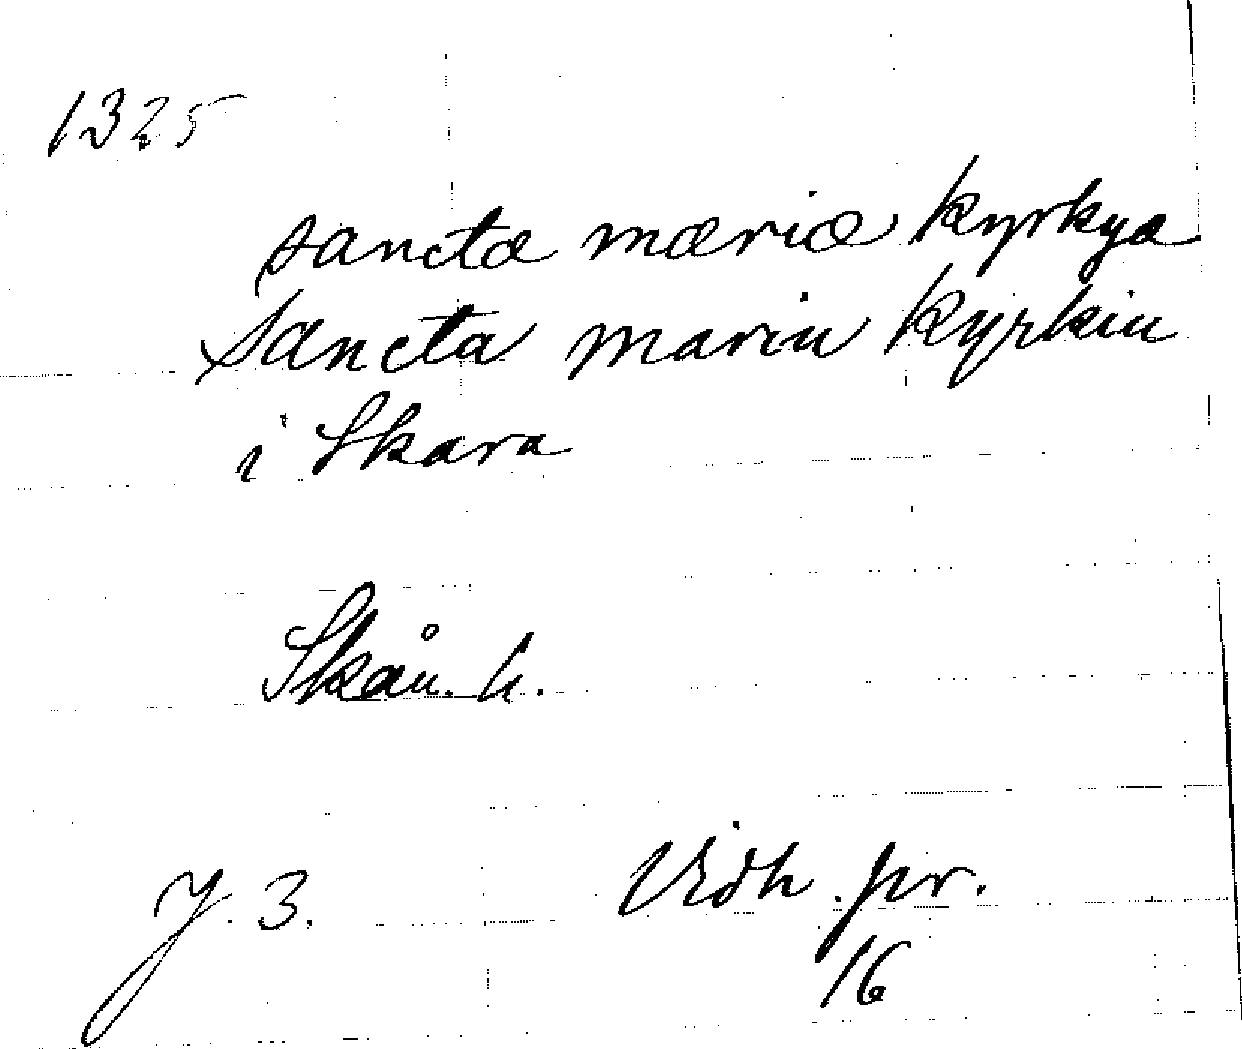 1325
sanctæ mæriæ kyrkya
sancta mariu kyrkiu
i Skara
Skån. h.
J. 3. Vidh. pr.
16